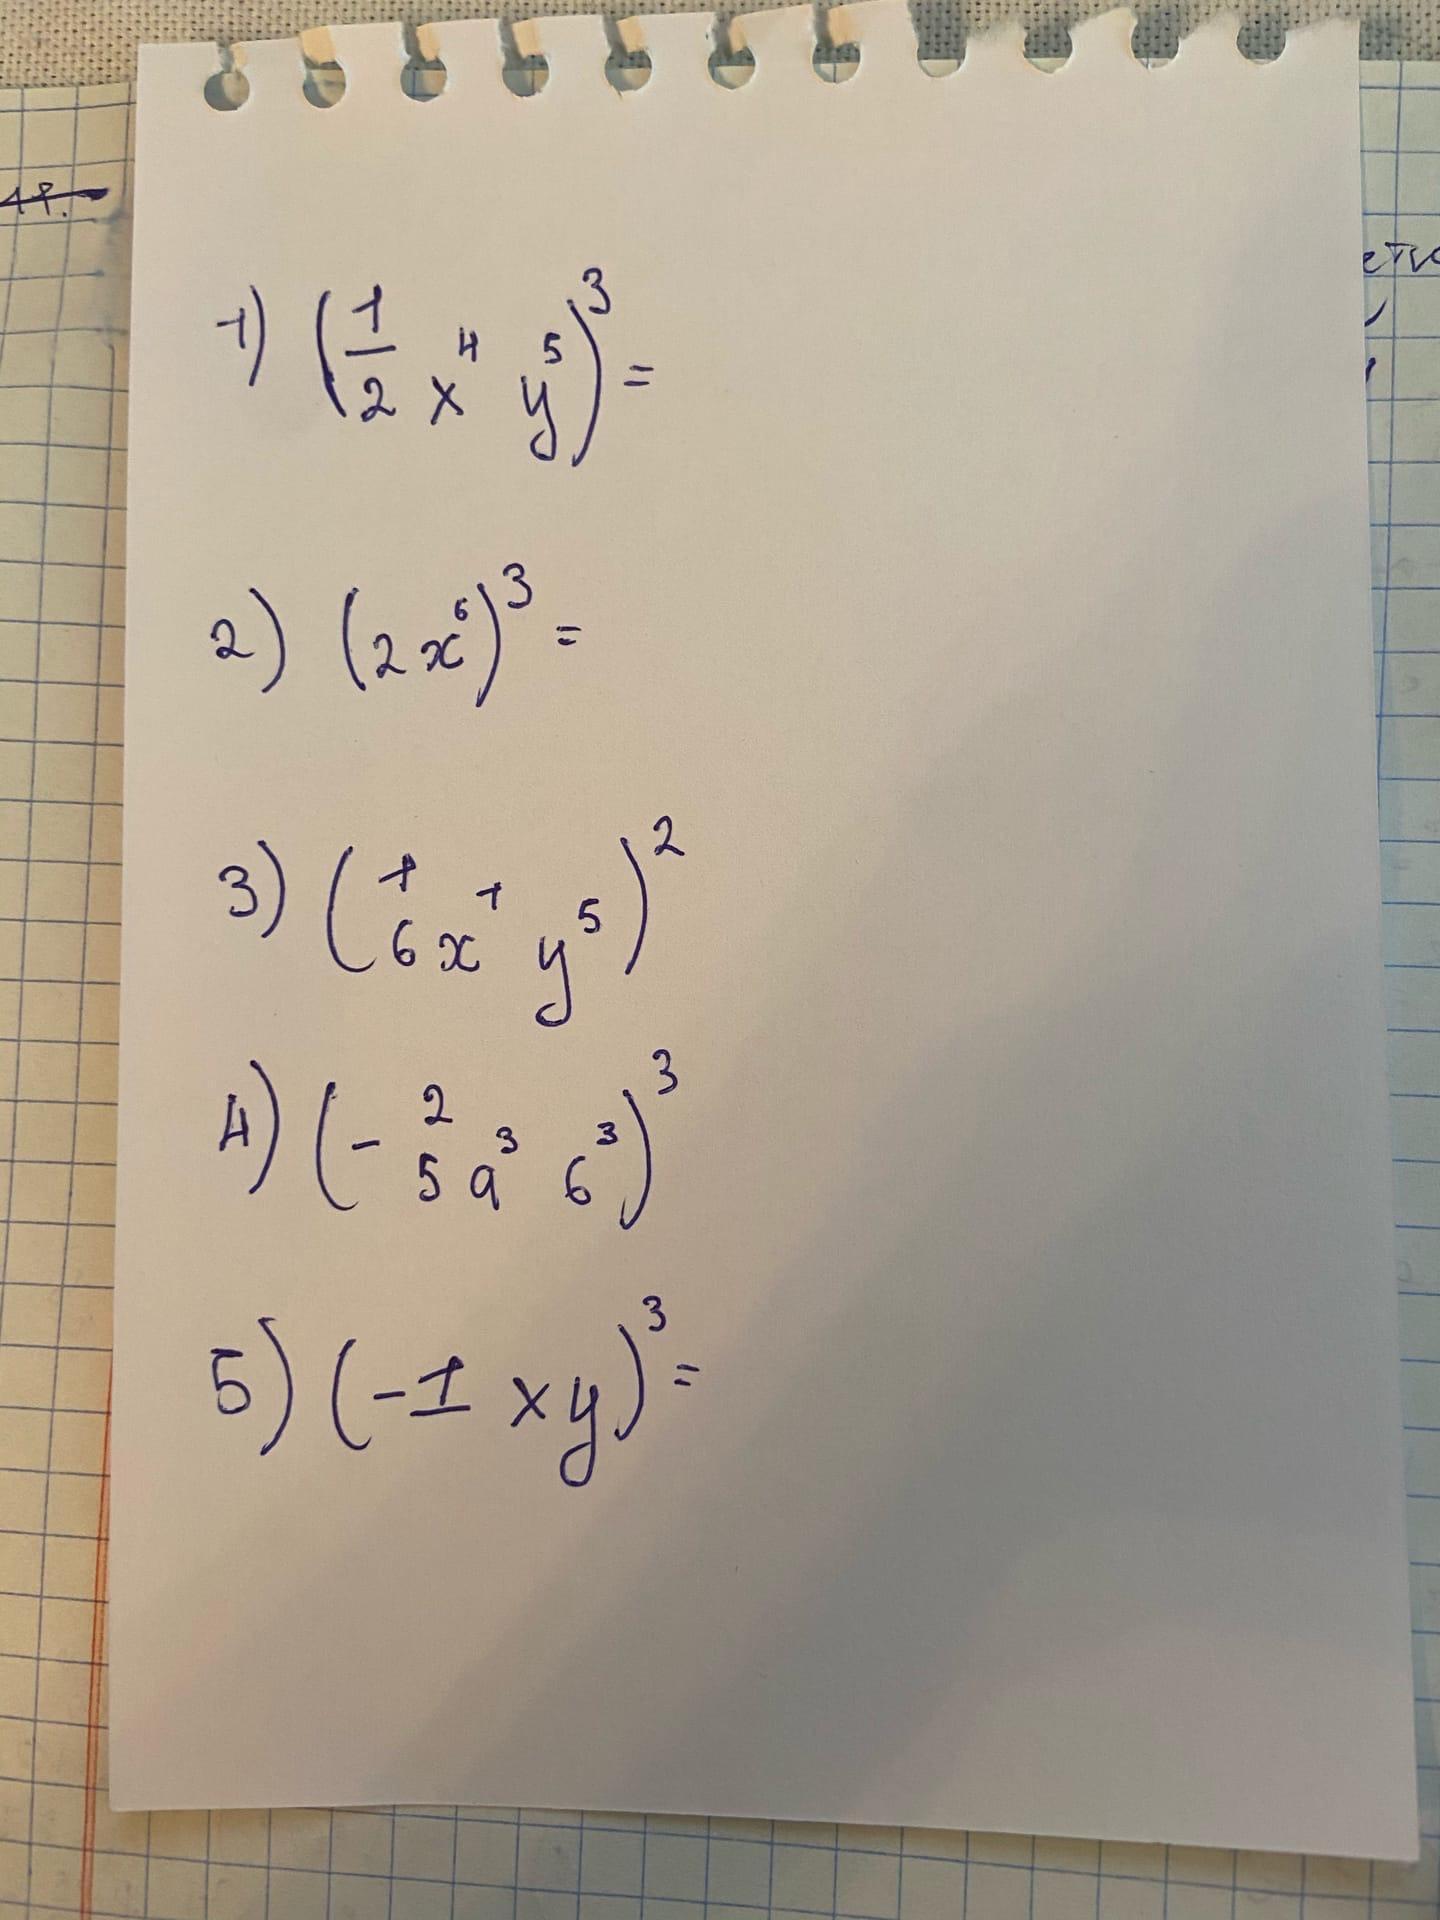 17.
1) (1/2 x⁴ y⁵)³ =
2) (2x⁶)³ =
3) (1/6 x¹ y⁵)²
4) (- 2/5 a³ б³)³
5) (-1 xy)³ =